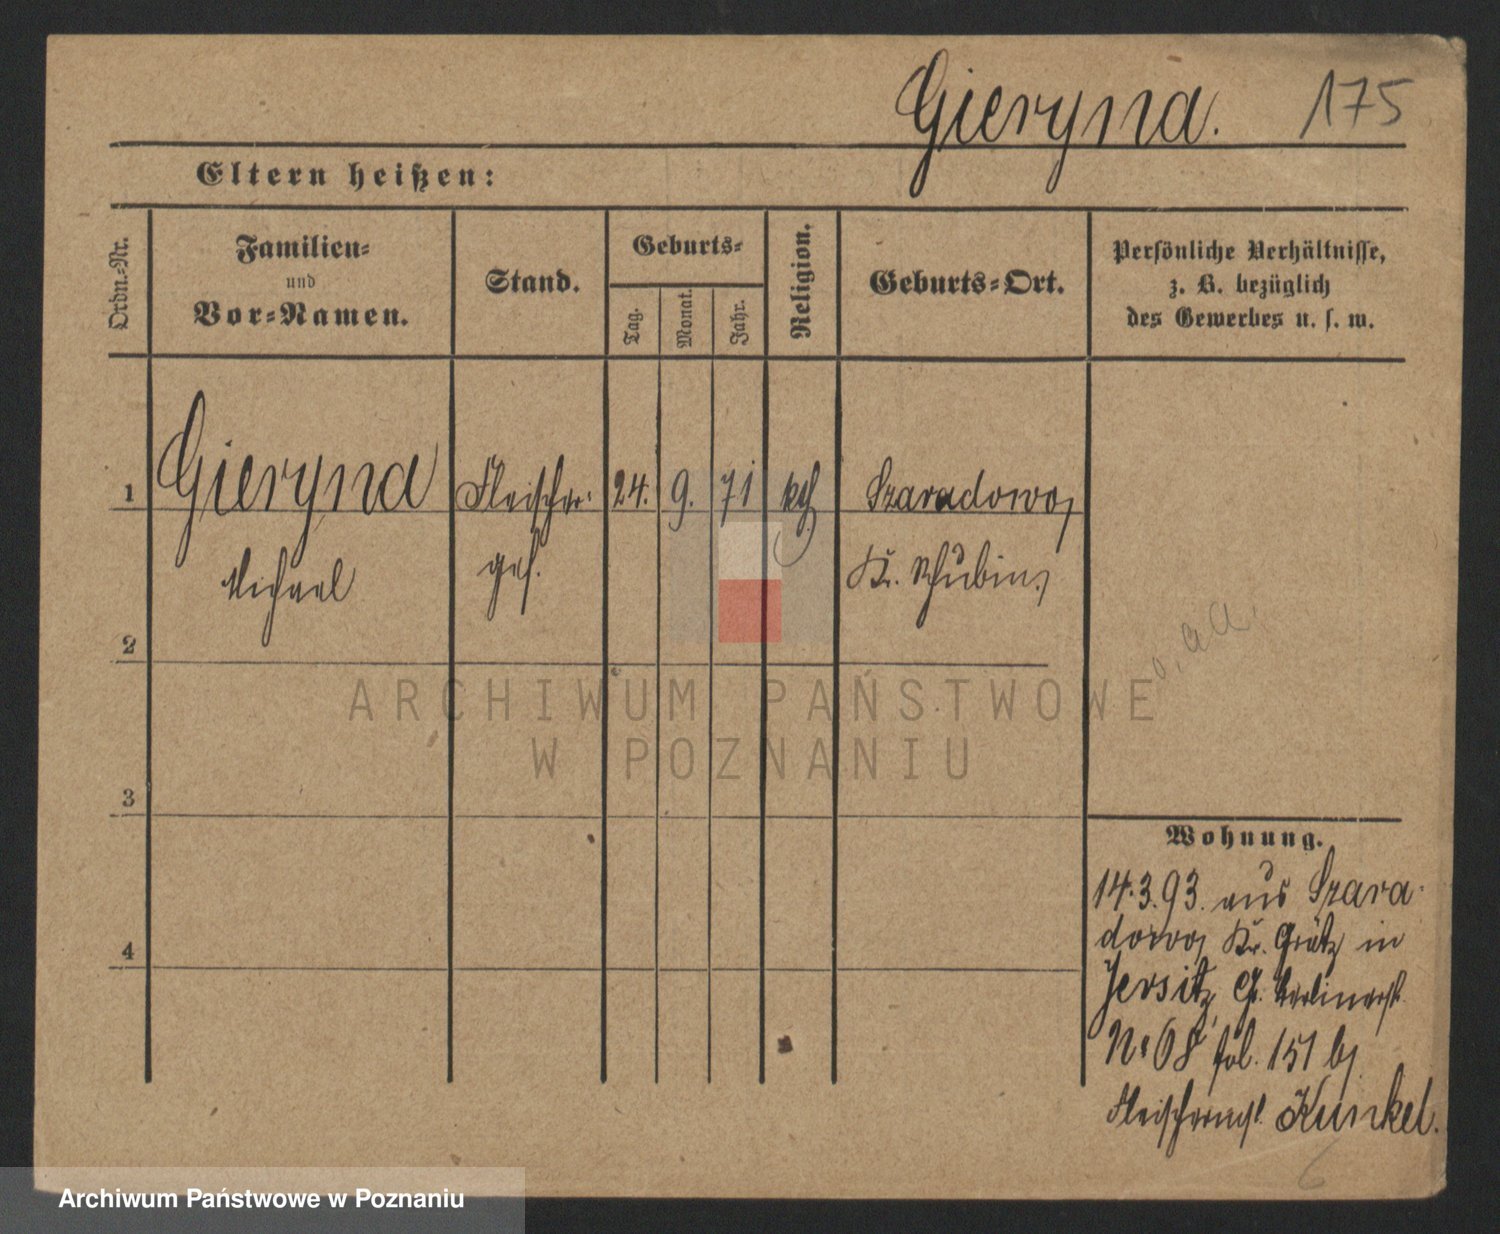 Gieryna. 175
Eltern heißen:
Ordn.-Nr.
Familien-
und
Vor-Namen.
Stand.
Geburts-
Tag.
Monat.
Jahr.
Religion.
Geburts-Ort.
Persönliche Verhältnisse,
z. B. bezüglich
des Gewerbes u. s. w.
1 Gieryna Fleischer- 24. 9. 71 kth. Szaradowo,
Michael ges. Kr. Schubin,
2
3
4
ARCHIWUM PAŃSTWOWE
W POZNANIU
Wohnung.
14.3.93. aus Szara-
dowo, Kr. Grätz in
Jersitz, Gr. Berlinerst.
No 68, fol. 151 bj.
Fleischermst. Kunkel.
Archiwum Państwowe w Poznaniu